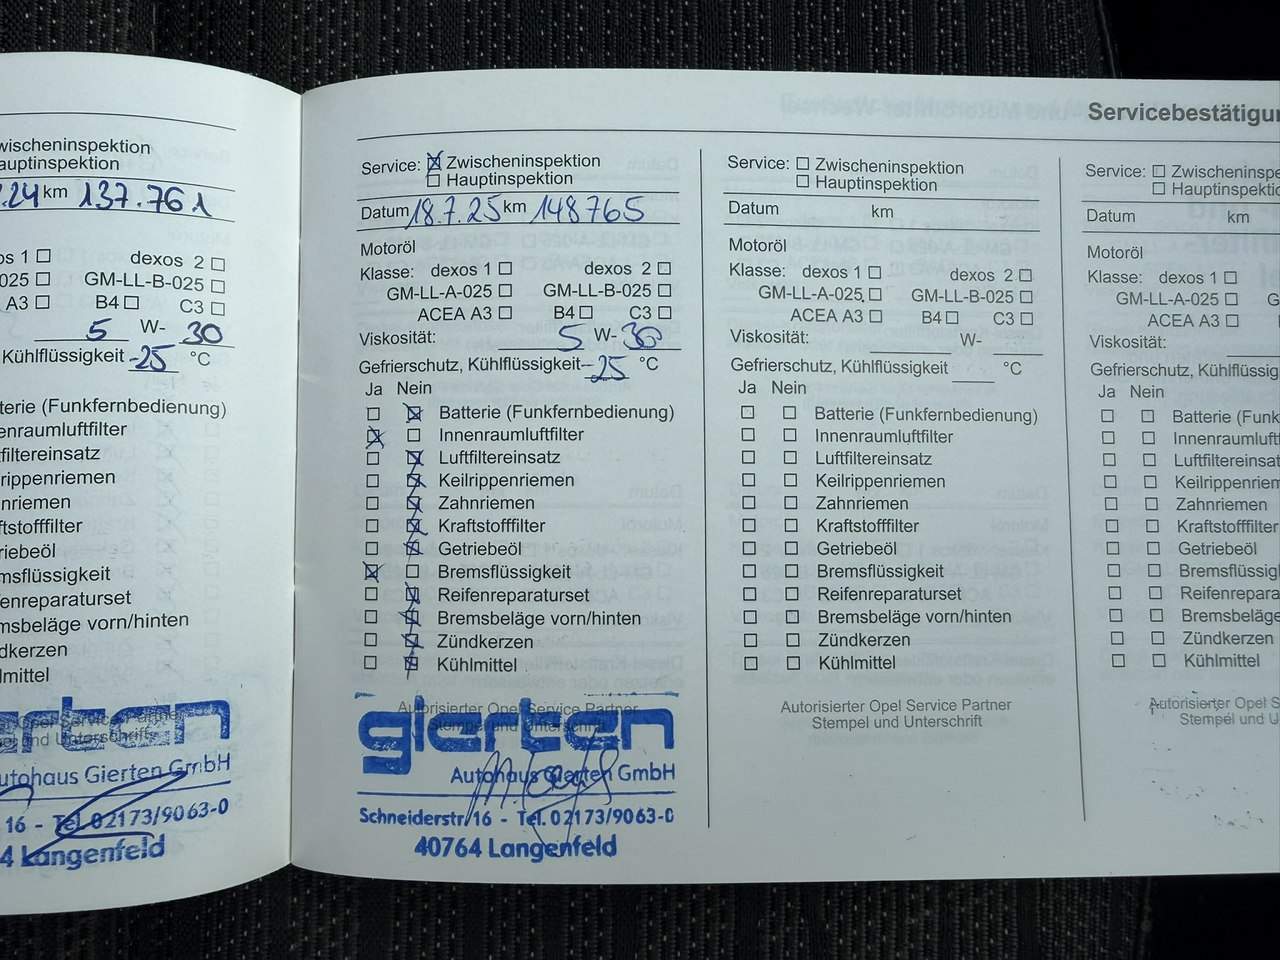 Servicebestätigun
wischeninspektion
auptinspektion
.24 km 137.761
os 1 ☐ dexos 2 ☐
025 ☐ GM-LL-B-025 ☐
A3 ☐ B4 ☐ C3 ☐
5 W- 30
Kühlflüssigkeit -25 °C
terie (Funkfernbedienung)
enraumluftfilter
ftfiltereinsatz
rippenriemen
nriemen
ftstofffilter
riebeöl
msflüssigkeit
ifenreparaturset
msbeläge vorn/hinten
dkerzen
lmittel
Opel Service Partner
pel und Unterschrift
erten
utohaus Gierten GmbH
16 - Tel. 02173/9063-0
4 Langenfeld
Service: ☒ Zwischeninspektion
☐ Hauptinspektion
Datum 18.7.25 km 148765
Motoröl
Klasse: dexos 1 ☐ dexos 2 ☐
GM-LL-A-025 ☐ GM-LL-B-025 ☐
ACEA A3 ☐ B4 ☐ C3 ☐
Viskosität: 5 W- 30
Gefrierschutz, Kühlflüssigkeit -25 °C
Ja Nein
☐ ☒ Batterie (Funkfernbedienung)
☒ ☐ Innenraumluftfilter
☐ ☒ Luftfiltereinsatz
☐ ☒ Keilrippenriemen
☐ ☒ Zahnriemen
☐ ☒ Kraftstofffilter
☐ ☒ Getriebeöl
☒ ☐ Bremsflüssigkeit
☐ ☒ Reifenreparaturset
☐ ☒ Bremsbeläge vorn/hinten
☐ ☒ Zündkerzen
☐ ☒ Kühlmittel
Autorisierter Opel Service Partner
Stempel und Unterschrift
gierten
Autohaus Gierten GmbH
Schneiderstr. 16 - Tel. 02173/9063-0
40764 Langenfeld
Service: ☐ Zwischeninspektion
☐ Hauptinspektion
Datum km
Motoröl
Klasse: dexos 1 ☐ dexos 2 ☐
GM-LL-A-025 ☐ GM-LL-B-025 ☐
ACEA A3 ☐ B4 ☐ C3 ☐
Viskosität: W-
Gefrierschutz, Kühlflüssigkeit °C
Ja Nein
☐ ☐ Batterie (Funkfernbedienung)
☐ ☐ Innenraumluftfilter
☐ ☐ Luftfiltereinsatz
☐ ☐ Keilrippenriemen
☐ ☐ Zahnriemen
☐ ☐ Kraftstofffilter
☐ ☐ Getriebeöl
☐ ☐ Bremsflüssigkeit
☐ ☐ Reifenreparaturset
☐ ☐ Bremsbeläge vorn/hinten
☐ ☐ Zündkerzen
☐ ☐ Kühlmittel
Autorisierter Opel Service Partner
Stempel und Unterschrift
Service: ☐ Zwischeninspekti
☐ Hauptinspektio
Datum km
Motoröl
Klasse: dexos 1 ☐
GM-LL-A-025 ☐ G
ACEA A3 ☐
Viskosität:
Gefrierschutz, Kühlflüssig
Ja Nein
☐ ☐ Batterie (Funk
☐ ☐ Innenraumluft
☐ ☐ Luftfiltereinsat
☐ ☐ Keilrippenriem
☐ ☐ Zahnriemen
☐ ☐ Kraftstofffilter
☐ ☐ Getriebeöl
☐ ☐ Bremsflüssigk
☐ ☐ Reifenrepara
☐ ☐ Bremsbeläge
☐ ☐ Zündkerzen
☐ ☐ Kühlmittel
Autorisierter Opel S
Stempel und U